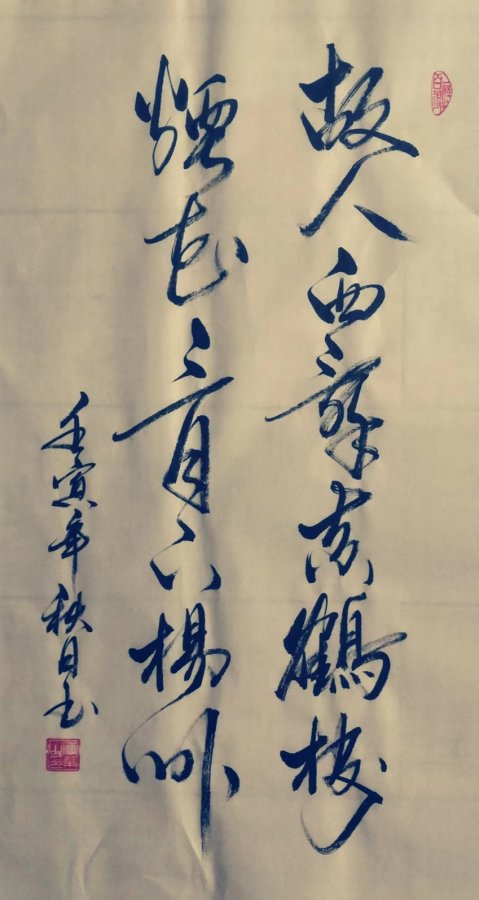 故人西辞黄鹤楼
烟花三月下楊州
壬寅年秋日书